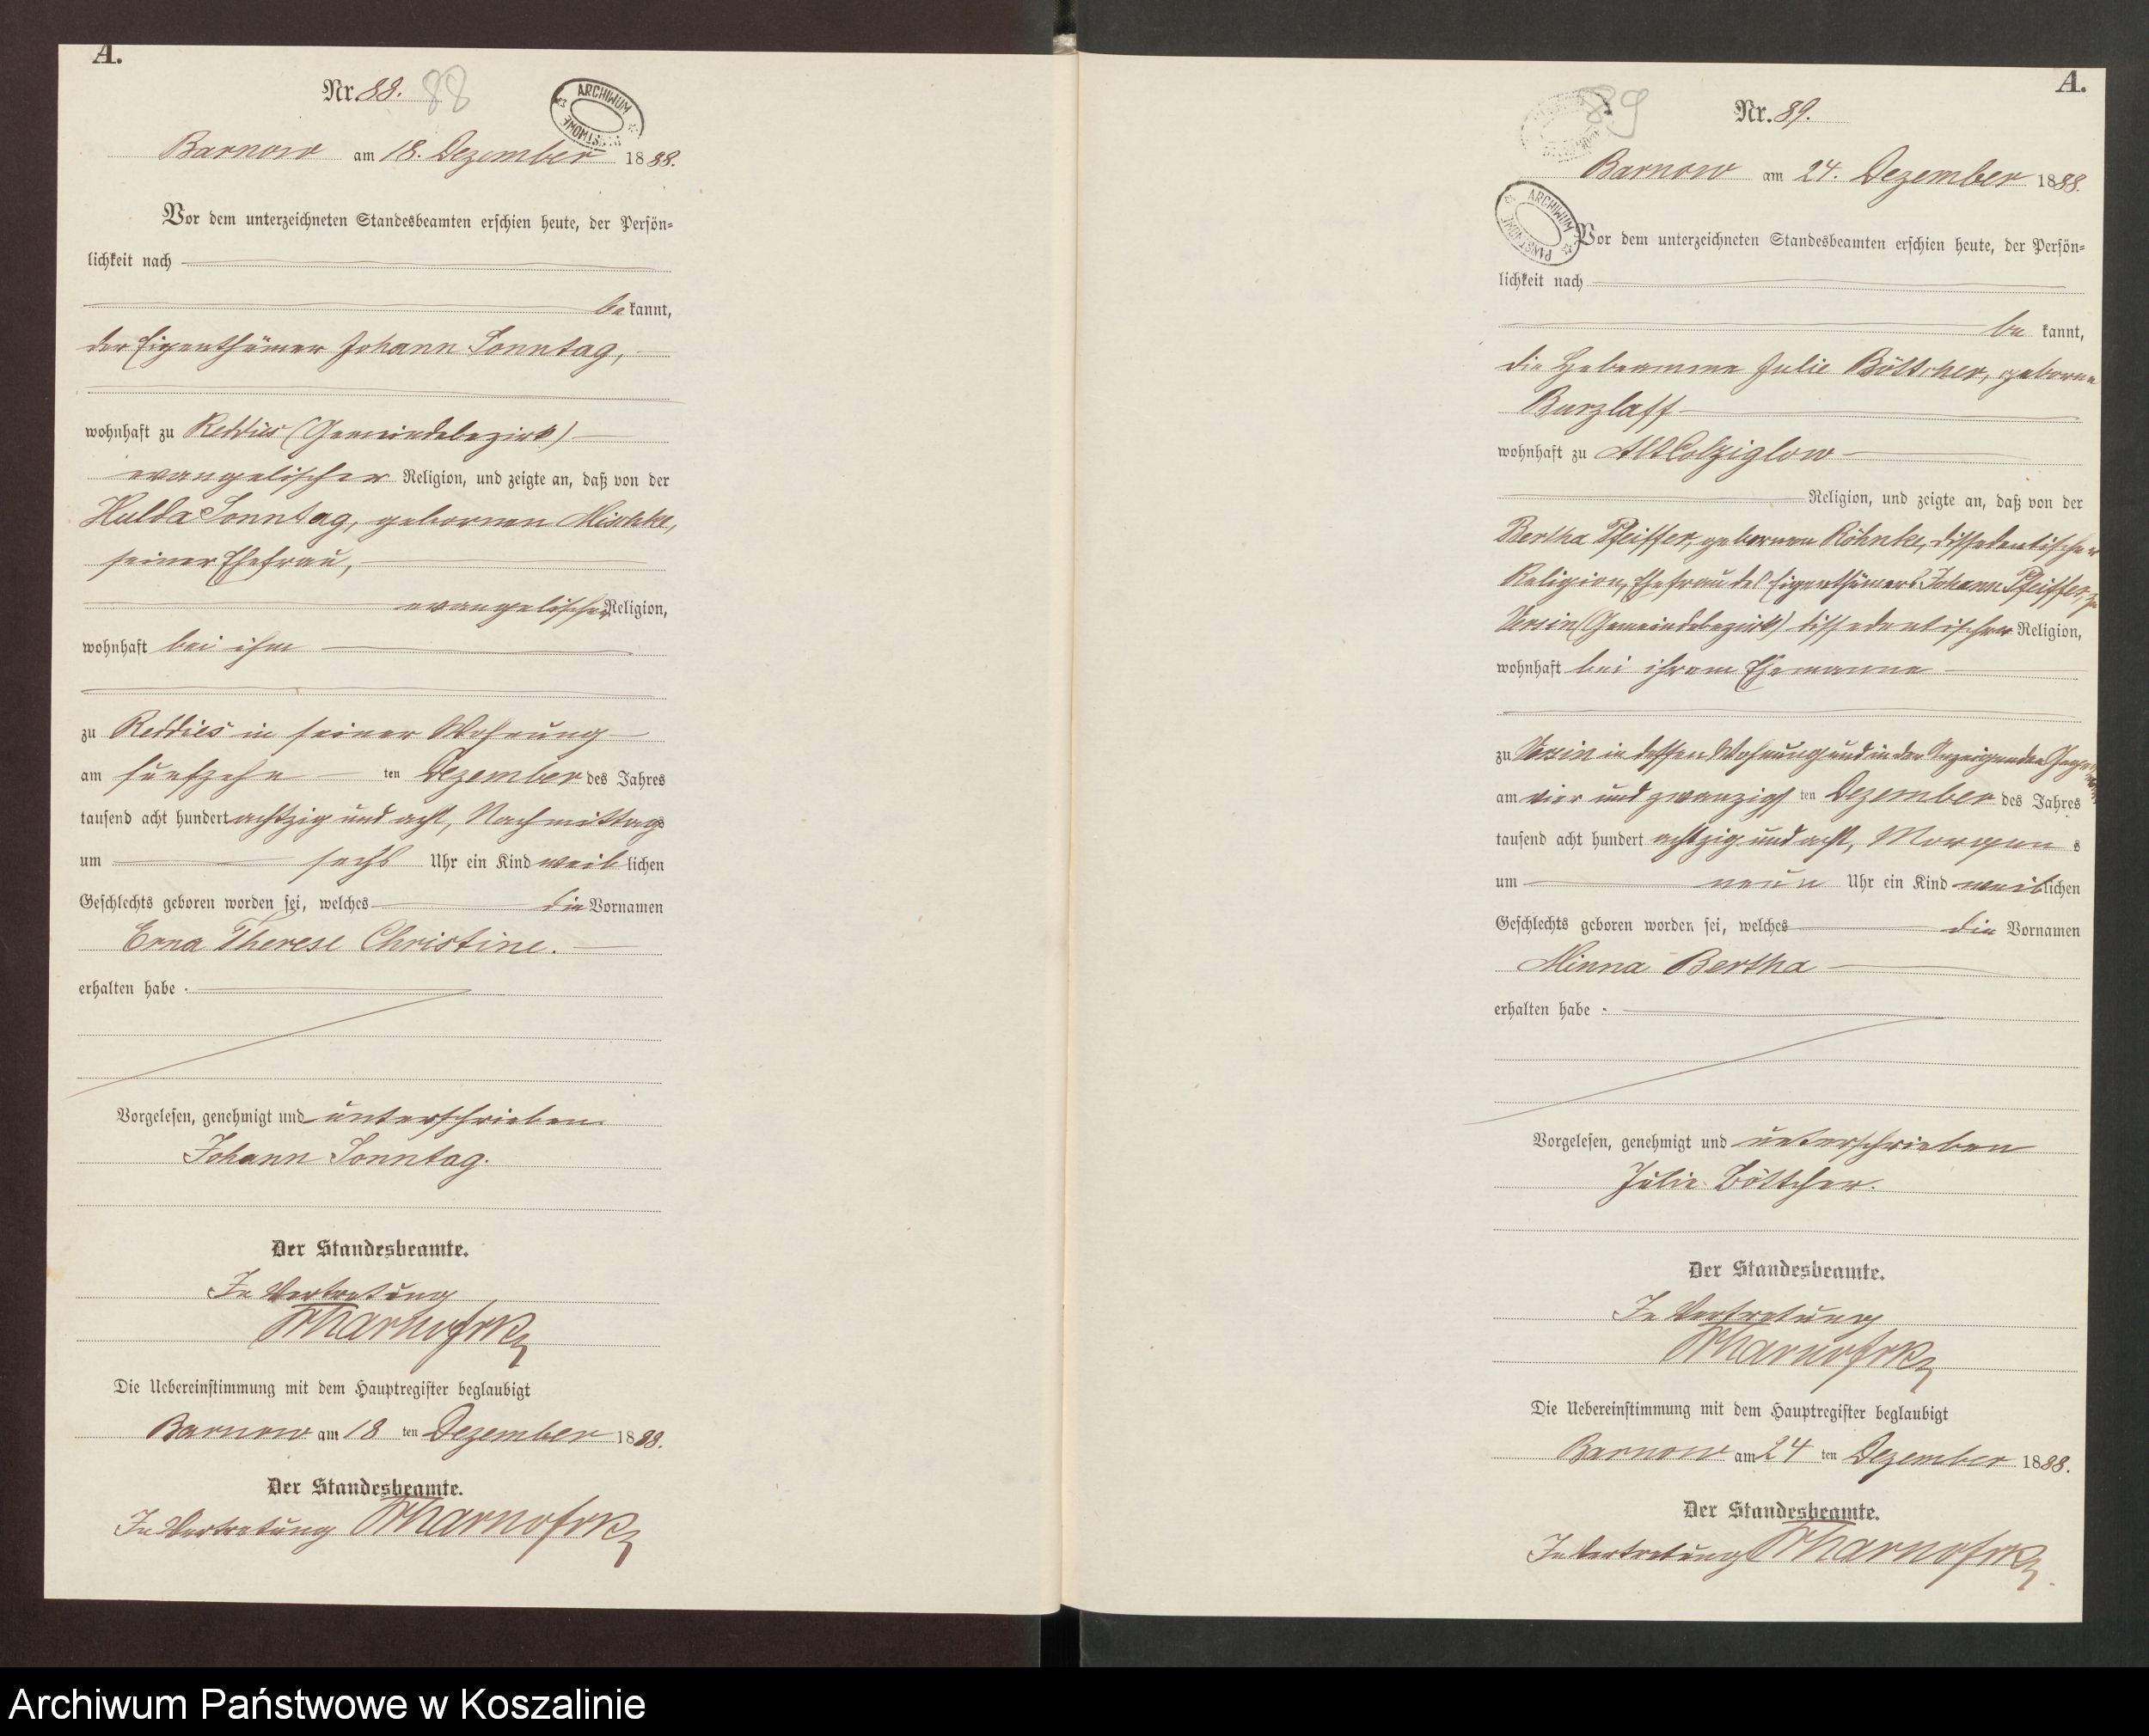 A.
Nr. 88. 88
ARCHIWUM PAŃSTWOWE
Barnow am 18. Dezember 1888.
Vor dem unterzeichneten Standesbeamten erschien heute, der Persön=
lichkeit nach
be kannt,
der Eigenthümer Johann Sonntag,
wohnhaft zu Reddies (Gemeindebezirk)
evangelischer Religion, und zeigte an, daß von der
Hulda Sonntag, gebornen Mischke,
seiner Ehefrau,
evangelischer Religion,
wohnhaft bei ihm
zu Reddies in seiner Wohnung
am fünfzehn ten Dezember des Jahres
tausend acht hundert achtzig und acht, Nachmittags
um sechs Uhr ein Kind weib lichen
Geschlechts geboren worden sei, welches die Vornamen
Erna Therese Christine.
erhalten habe.
Vorgelesen, genehmigt und unterschrieben
Johann Sonntag.
Der Standesbeamte.
In Vertretung
Die Uebereinstimmung mit dem Hauptregister beglaubigt
Barnow am 18 ten Dezember 1888.
Der Standesbeamte.
In Vertretung
A.
89
Nr. 89.
Barnow am 24. Dezember 1888.
ARCHIWUM PAŃSTWOWE
Vor dem unterzeichneten Standesbeamten erschien heute, der Persön=
lichkeit nach
be kannt,
die Hebeamme Julie Böttcher, geborne
Burzlaff
wohnhaft zu Alt Colziglow
Religion, und zeigte an, daß von der
Bertha Pfeiffer, gebornen Röhnke, dissedentischer
Religion, Ehefrau des Eigenthümers Johann Pfeiffer, zu
Versin (Gemeindebezirk) dissedentischer Religion,
wohnhaft bei ihrem Ehemanne
zu Versin in dessen Wohnung und in der Anzeigenden Gegenwart
am vier und zwanzigs ten Dezember des Jahres
tausend acht hundert achtzig und acht, Morgen s
um neun Uhr ein Kind weib lichen
Geschlechts geboren worden sei, welches die Vornamen
Minna Bertha
erhalten habe.
Vorgelesen, genehmigt und unterschrieben
Julie Böttcher.
Der Standesbeamte.
In Vertretung
Die Uebereinstimmung mit dem Hauptregister beglaubigt
Barnow am 24 ten Dezember 1888.
Der Standesbeamte.
In Vertretung
Archiwum Państwowe w Koszalinie